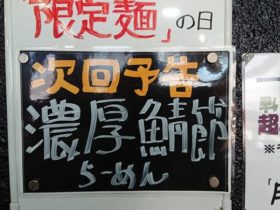 「限定麺」の日
次回予告
濃厚鯖節
らーめん
超